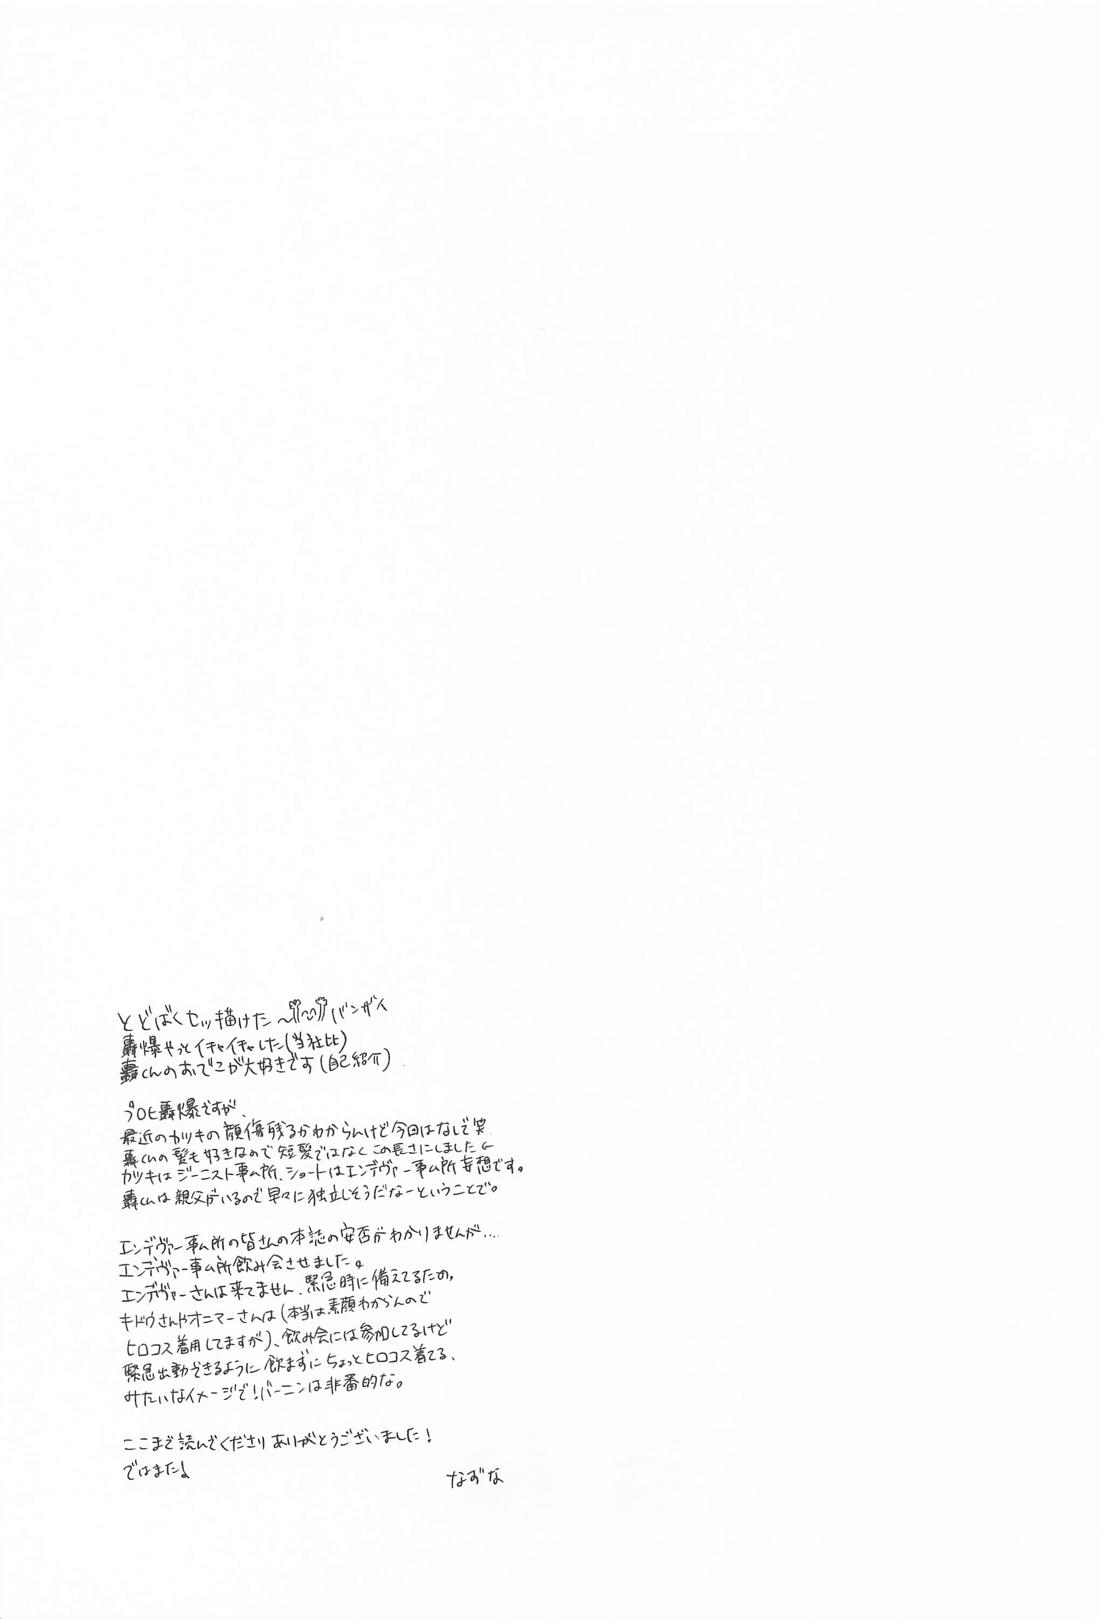 とどばくセッ描けた～バンザイ
轟爆やっとイチャイチャした(当社比)
轟くんのおでこが大好きです(自己紹介)
プロヒ轟爆ですが、
最近のカツキの顔傷残るかわからんけど今回はなしで笑
轟くんの髪も好きなので短髪ではなくこの長さにしました
カツキはジーニスト事ム所、ショートはエンデヴァー事ム所妄想です。
轟くんは親父がいるので早々に独立しそうだなーということで。
エンデヴァー事ム所の皆さんの本誌の安否がわかりませんが…
エンデヴァー事ム所飲み会させました。
エンデヴァーさんは来てません、緊急時に備えてるため。
キドウさんやオニマーさんは(本当は素顔わからんので
ヒロコス着用してますが)、飲み会には参加してるけど
緊急出動できるように飲まずにちょっとヒロコス着てる、
みたいなイメージで!バーニンは非番的な。
ここまで読んでくださりありがとうございました!
ではまた♪
なずな